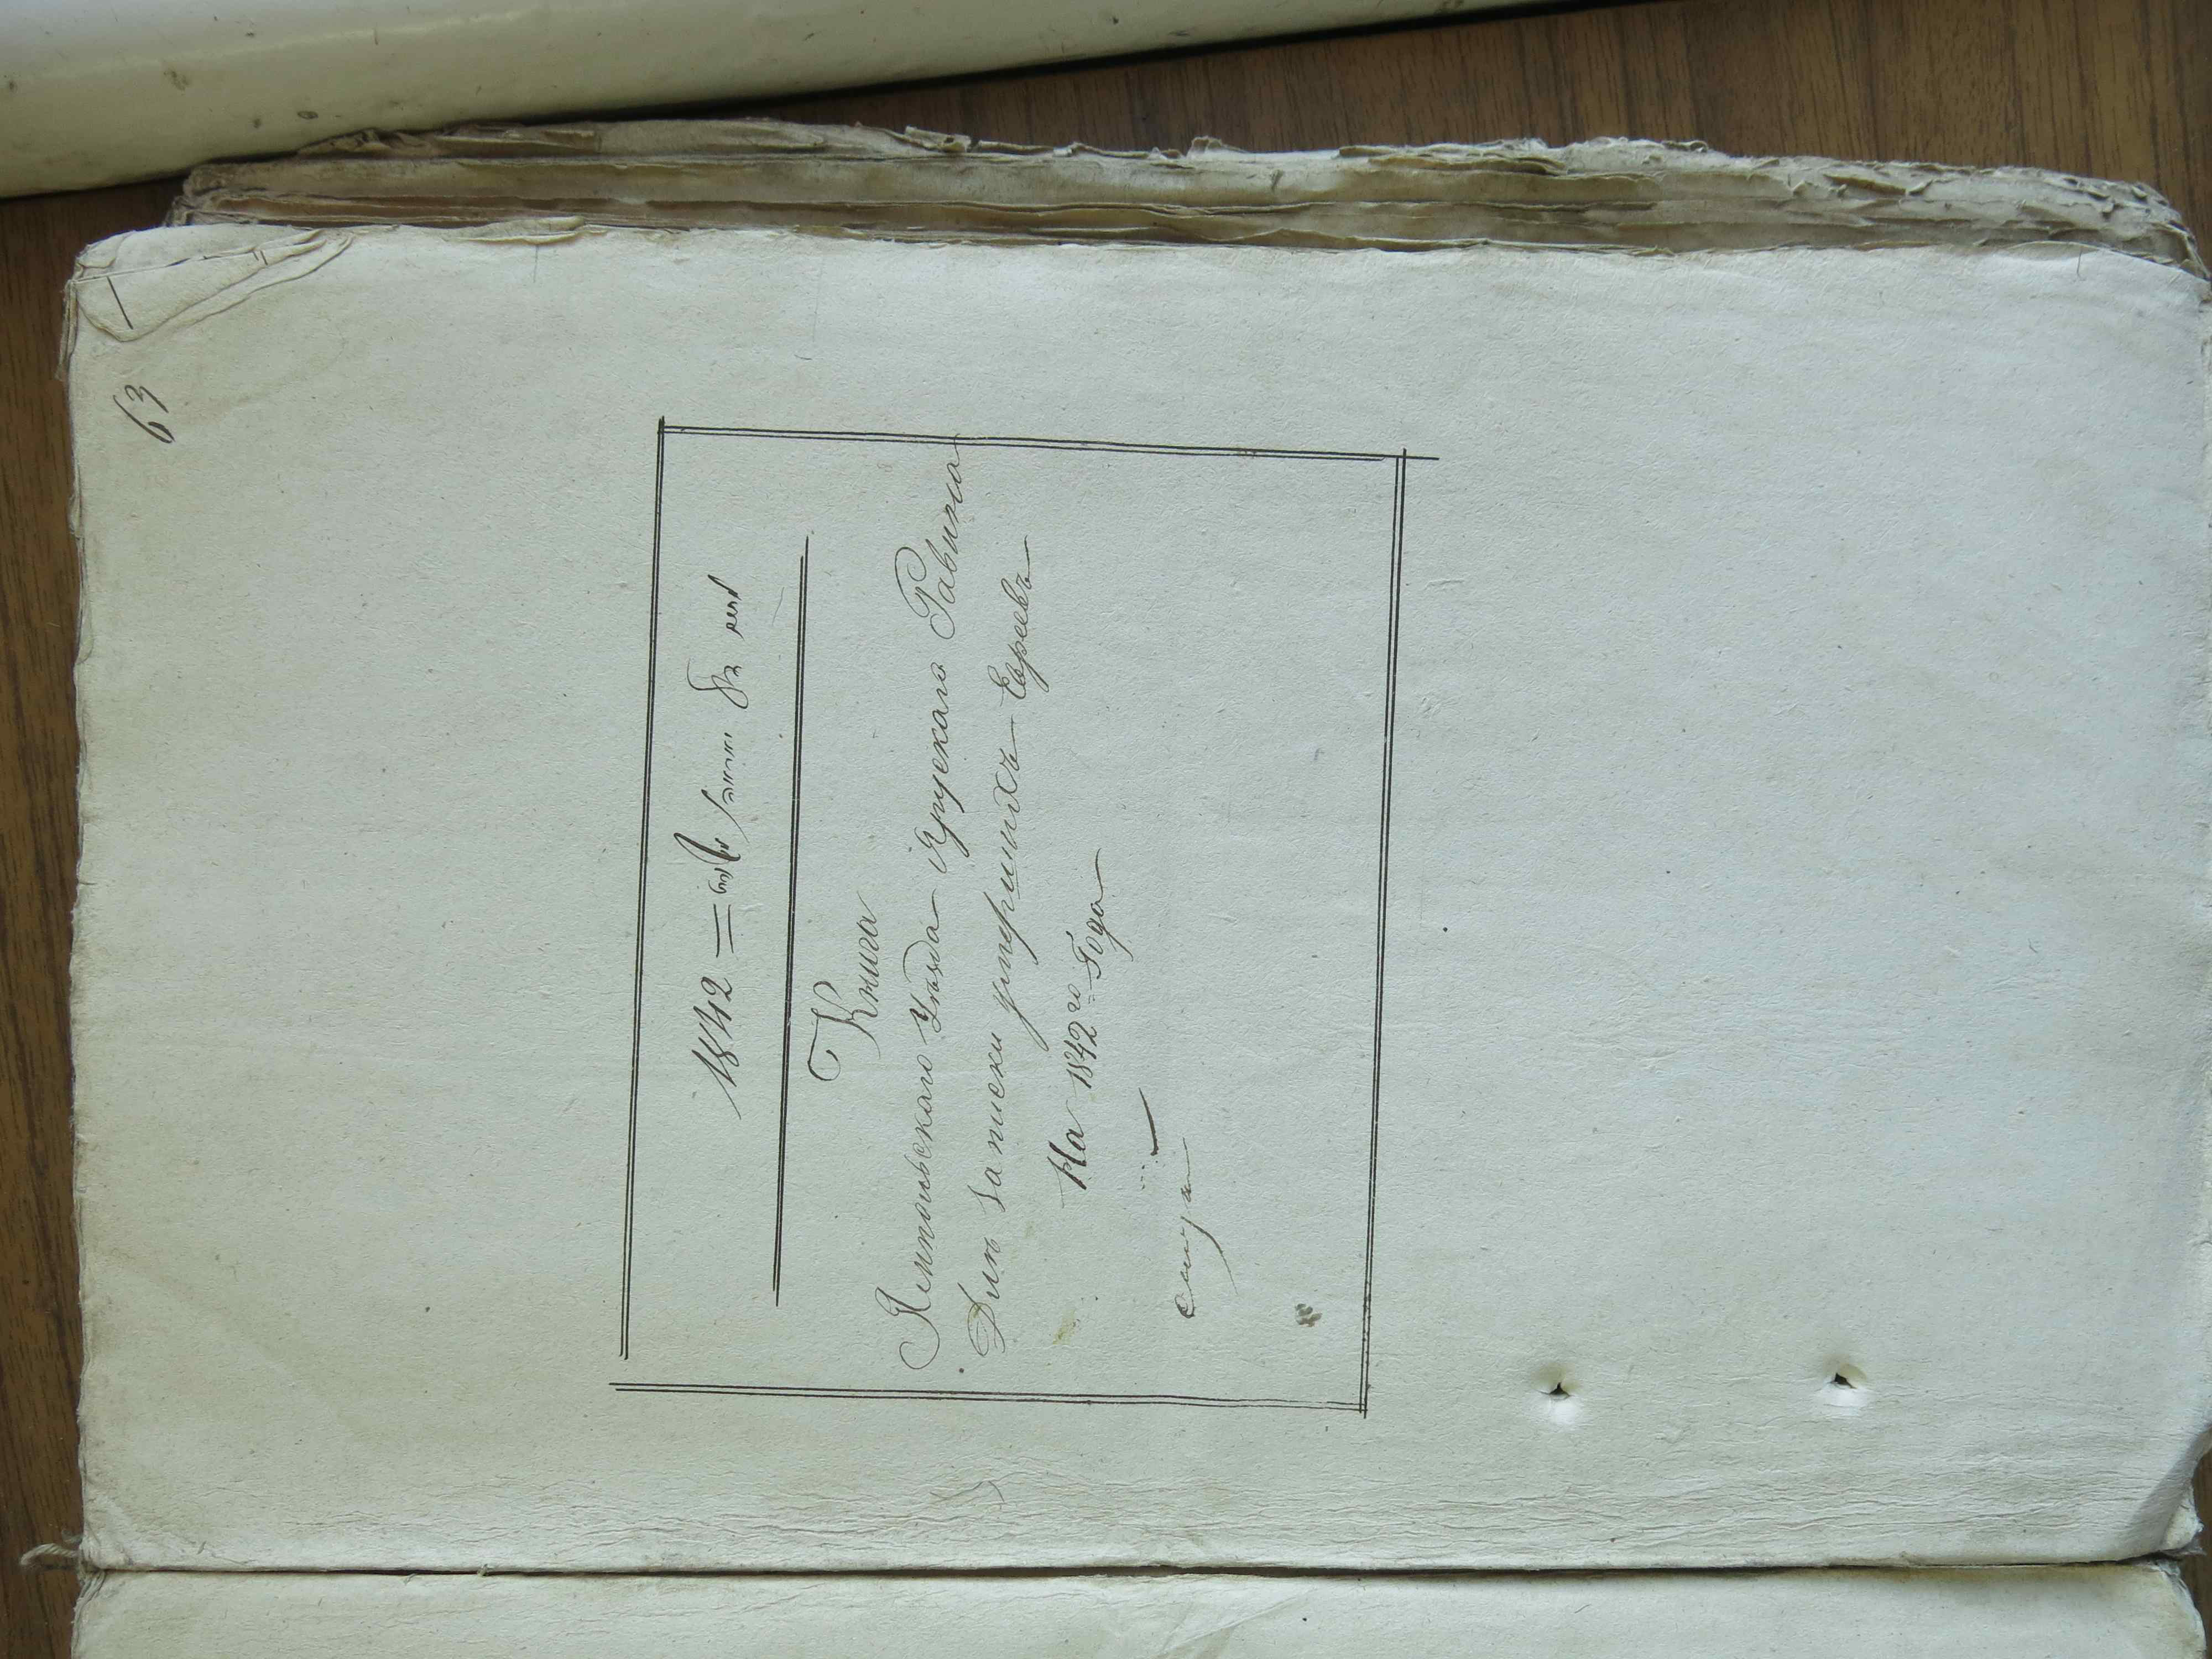 63
1842
Книга
Ямпольскаго Уѣзда Яругскаго Равина
Для записки умершихъ Евреевъ
На 1842го Года